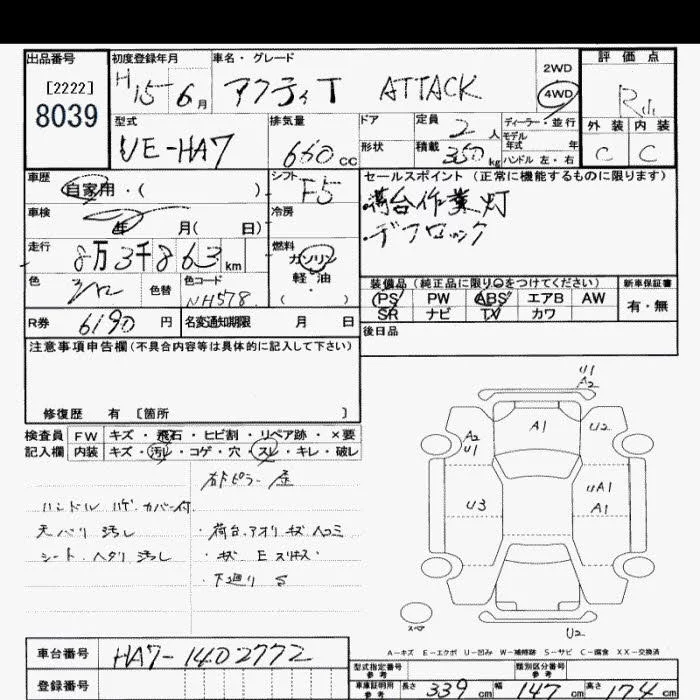 出品番号 初度登録年月 車名・グレード 評価点
[2222]
8039
H15-6月 アクティT ATTACK
2WD
4WD
型式 排気量 ドア 定員 2人 ディーラー・並行
モデル
年式 年
外装 内装
UE-HA7 660cc
形状 積載 350kg ハンドル 左・右
C C
車歴 自家用・( )
シフト F5
セールスポイント(正常に機能するものに限ります)
・荷台作業灯
・デフロック
車検 年 月( 日)
冷房
走行 8万3千863km
燃料 ガソリン
軽・油
・( )
色 色替 色コード
NH578
装備品(純正品に限り○をつけてください) 新車保証書
PS PW ABS エアB AW
SR ナビ TV カワ
有・無
R券 6190円 名変通知期限 月 日
後日品
注意事項申告欄(不具合内容等は具体的に記入して下さい)
修復歴 有 [箇所 ]
検査員 FW キズ・飛石・ヒビ割・リペア跡・×要
記入欄 内装 キズ・汚レ・コゲ・穴・スレ・キレ・破レ
右Fピラー 歪
ハンドル ハゲ・カバー付
天バリ 汚レ
シート・ヘタリ 汚レ
・荷台、アオリ キズ ヘコミ
・キズ E スリキズ
・下廻り S
U1
A2
A1
U2
A2
U1
U3
UA1
A1
スペア
U2
A-キズ E-エクボ U-凹み W-補修跡 S-サビ C-腐食 XX-交換済
車台番号 HA7-1402772
登録番号
型式指定番号
参考
類別区分番号
参考
車庫証明用
参考
長さ 339cm 幅 147cm 高さ 174cm